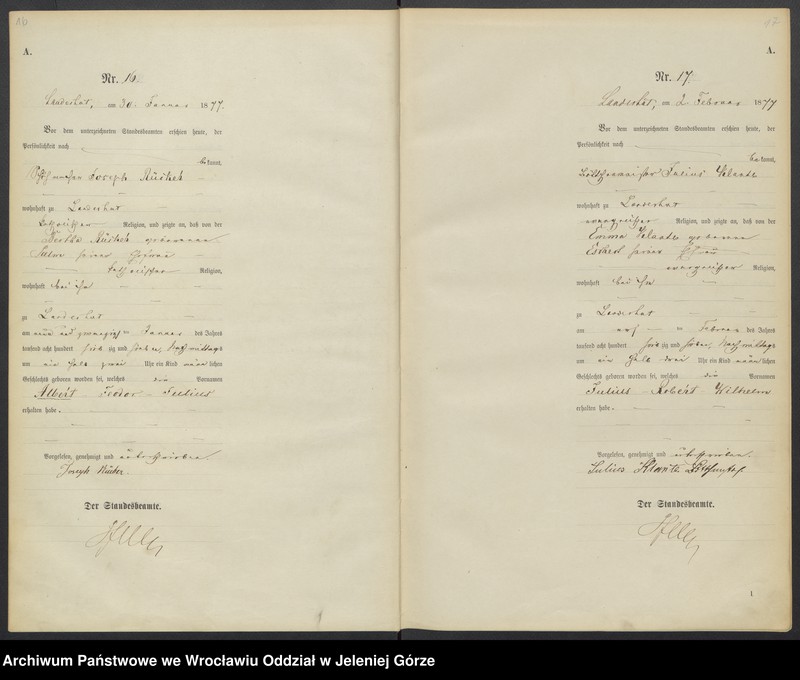 16
A.
Nr. 16.
Landeshut, am 30. Januar 1877.
Vor dem unterzeichneten Standesbeamten erschien heute, der
Persönlichkeit nach
bekannt,
Joseph
wohnhaft zu Landeshut
katholischer Religion, und zeigte an, daß von der
geborenen
seiner Ehefrau
katholischer Religion,
wohnhaft bei ihm
zu Landeshut
am neun und zwanzigsten Januar des Jahres
tausend acht hundert siebzig und sieben, Nachmittags
um ein halb zwei Uhr ein Kind männlichen
Geschlechts geboren worden sei, welches die Vornamen
Albert Teodor Julius
erhalten habe.
Vorgelesen, genehmigt und unterschrieben.
Joseph
Der Standesbeamte.
17
A.
Nr. 17.
Landeshut, am 2. Februar 1877
Vor dem unterzeichneten Standesbeamten erschien heute, der
Persönlichkeit nach
bekannt,
Julius
wohnhaft zu Landeshut
evangelischer Religion, und zeigte an, daß von der
Emma geborenen
seiner Ehefrau
evangelischer Religion,
wohnhaft bei ihm
zu Landeshut
am ersten Februar des Jahres
tausend acht hundert siebzig und sieben, Nachmittags
um ein halb drei Uhr ein Kind männlichen
Geschlechts geboren worden sei, welches die Vornamen
Julius Robert Wilhelm
erhalten habe.
Vorgelesen, genehmigt und unterschrieben.
Julius
Der Standesbeamte.
1
Archiwum Państwowe we Wrocławiu Oddział w Jeleniej Górze